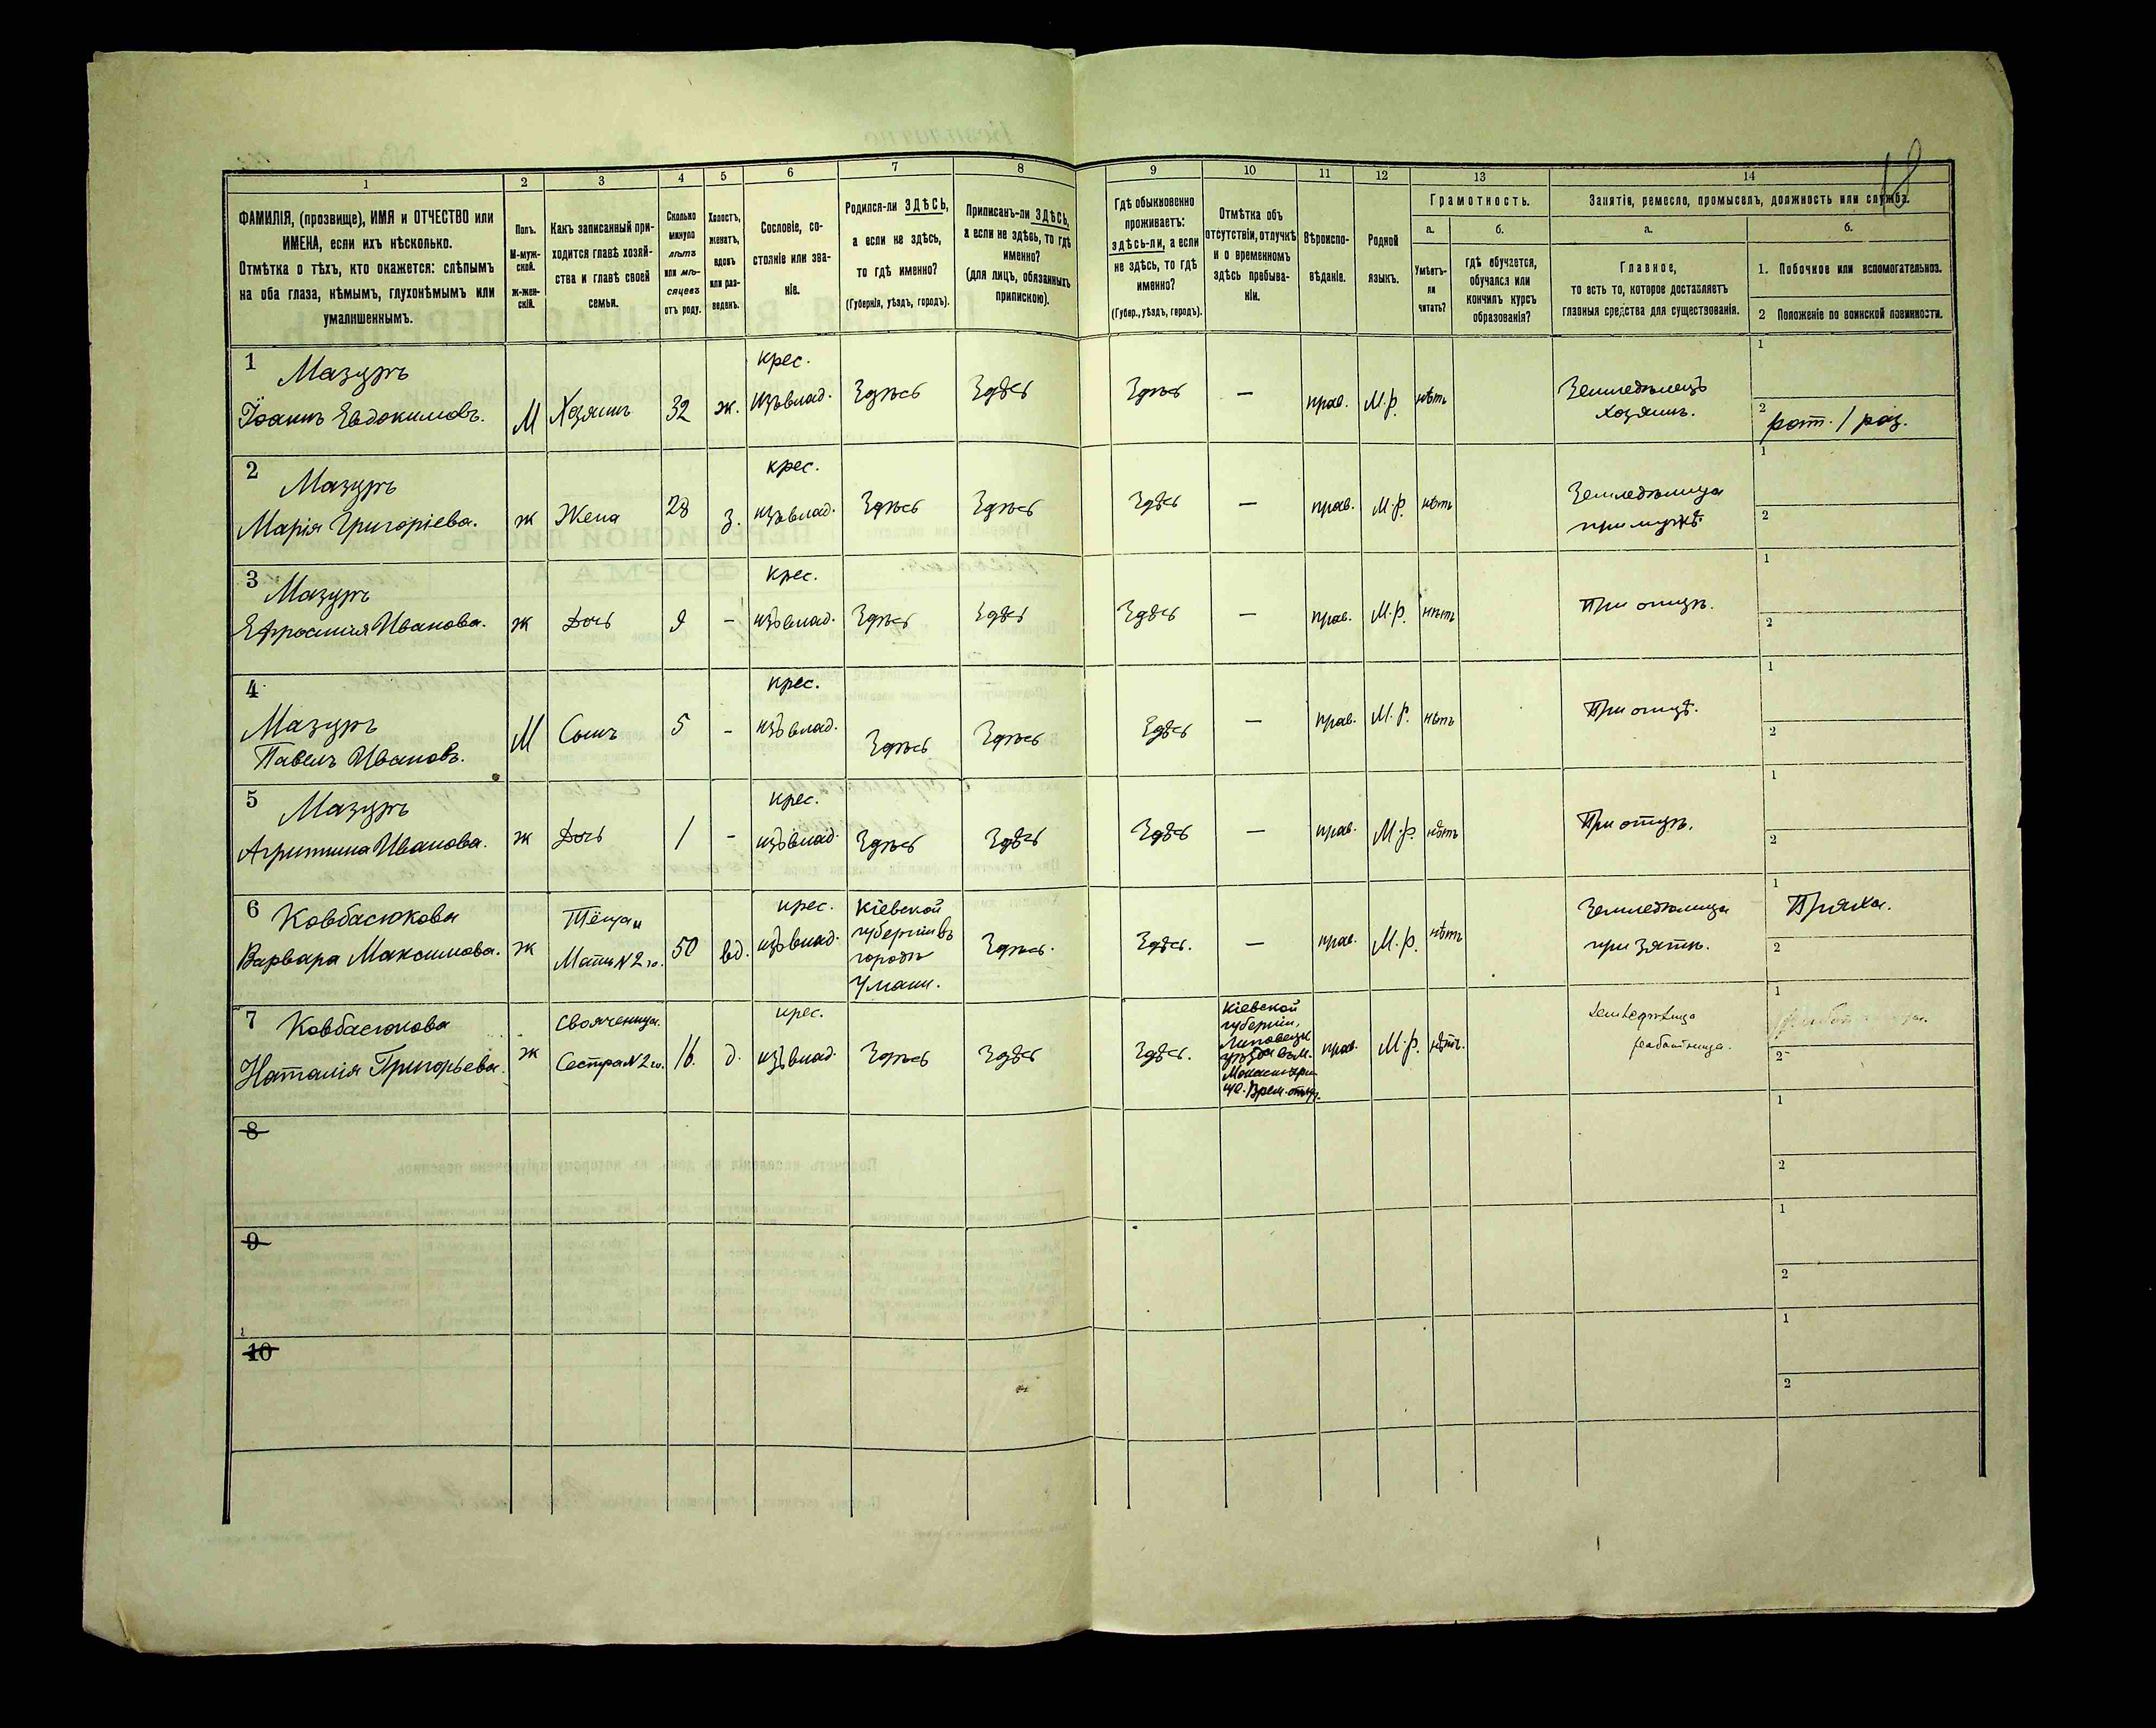 18
1 2 3 4 5 6 7 8 9 10 11 12 13 14
ФАМИЛІЯ, (прозвище), ИМЯ и ОТЧЕСТВО или
ИМЕНА, если ихъ нѣсколько.
Отмѣтка о тѣхъ, кто окажется: слѣпымъ
на оба глаза, нѣмымъ, глухонѣмымъ или
умалишеннымъ.
Полъ.
М-муж-
ской.
ж-жен-
скій.
Какъ записанный при-
ходится главѣ хозяй-
ства и главѣ своей
семьи.
Сколько
минуло
лѣтъ
или мѣ-
сяцевъ
отъ роду.
Холостъ,
женатъ,
вдовъ
или раз-
веденъ.
Сословіе, со-
стояніе или зва-
ніе.
Родился-ли ЗДѢСЬ,
а если не здѣсь,
то гдѣ именно?
(Губернія, уѣздъ, городъ).
Приписанъ-ли ЗДѢСЬ,
а если не здѣсь, то гдѣ
именно?
(для лицъ, обязанныхъ
припискою).
Гдѣ обыкновенно
проживаетъ:
здѣсь-ли, а если
не здѣсь, то гдѣ
именно?
(Губер., уѣздъ, городъ).
Отмѣтка объ
отсутствіи, отлучкѣ
и о временномъ
здѣсь пребыва-
ніи.
Вѣроиспо-
вѣданіе.
Родной
языкъ.
Грамотность.
а.
Умѣетъ-
ли
читать?
б.
гдѣ обучается,
обучался или
кончилъ курсъ
образованія?
Занятіе, ремесло, промыселъ, должность или служба.
а.
Главное,
то есть то, которое доставляетъ
главныя средства для существованія.
б.
1. Побочное или вспомогательное.
2 Положеніе по воинской повинности.
1
Мазуръ
Іоаннъ Евдокимовъ.
М
Хозяинъ
32
ж.
крес.
изъ влад.
Здѣсь
Здѣсь
Здѣсь
—
прав.
М.р.
нѣтъ
Земледѣлецъ
хозяинъ.
1
2
рат. 1 раз.
2
Мазуръ
Марія Григоріева.
ж
Жена
28
з.
крес.
изъ влад.
Здѣсь
Здѣсь
Здѣсь
—
прав.
М.р.
нѣтъ
Земледѣлица
при мужѣ.
1
2
3
Мазуръ
Ефросинія Иванова.
ж
Дочь
9
-
крес.
изъ влад.
Здѣсь
Здѣсь
Здѣсь
—
прав.
М.р.
нѣтъ
При отцѣ.
1
2
4
Мазуръ
Павелъ Ивановъ.
М
Сынъ
5
-
крес.
изъ влад.
Здѣсь
Здѣсь
Здѣсь
—
прав.
М.р.
нѣтъ
При отцѣ.
1
2
5
Мазуръ
Агрипина Иванова.
ж
Дочь
1
-
крес.
изъ влад.
Здѣсь
Здѣсь
Здѣсь
—
прав.
М.р.
нѣтъ
При отцѣ.
1
2
6
Ковбасюкова
Варвара Максимова.
ж
Тёща и
Мать N 2го.
50
вд.
крес.
изъ влад.
Кіевской
губерніи въ
городѣ
Умани.
Здѣсь.
Здѣсь.
—
прав.
М.р.
нѣтъ
Земледѣлица
при зятѣ.
1
Пряха.
2
7
Ковбасюкова
Наталія Григорьева.
ж
Свояченица.
Сестра N 2го.
16.
д.
крес.
изъ влад.
Здѣсь
Здѣсь
Здѣсь.
Кіевской
губерніи,
Липовецк
уѣзда въ м.
Монастыри
ще. Врем. отлуч.
прав.
М.р.
нѣтъ.
Земледѣлица
работница.
1
2
8
1
2
9
1
2
10
1
2